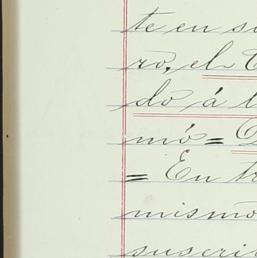 te en su
ro, el
do á l
mó =
= En tr
mismo
suscri